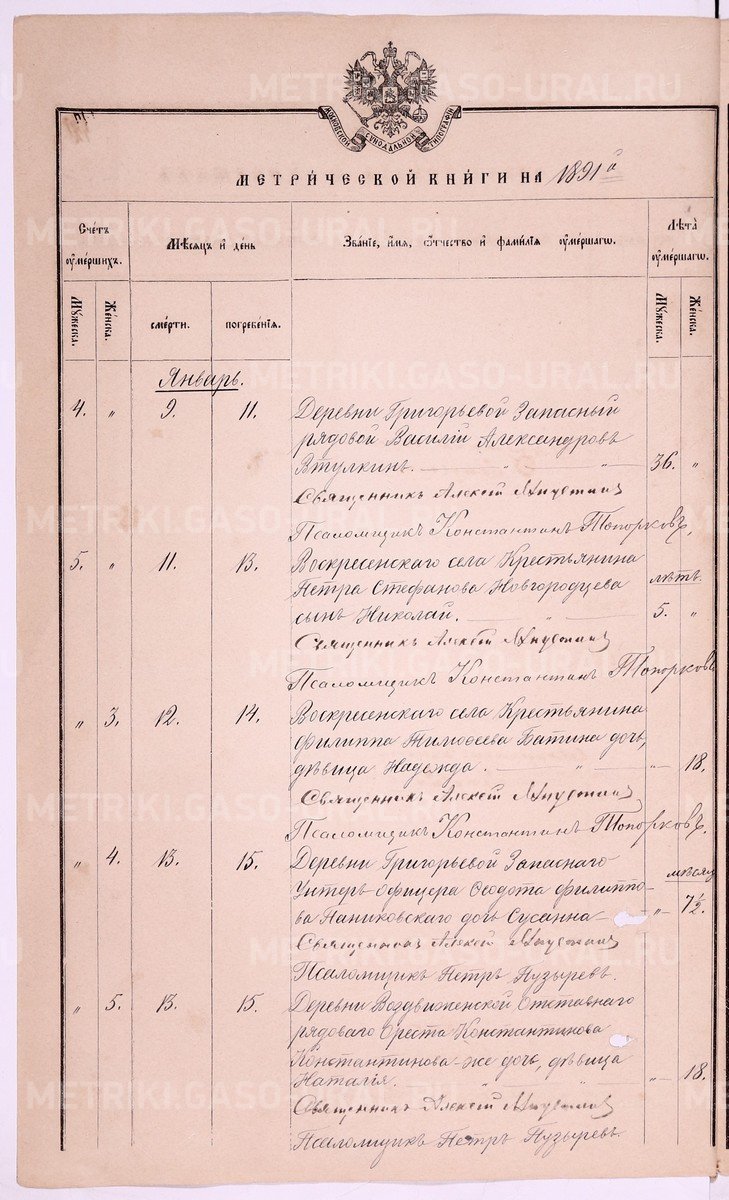 МОСКОВСКОЙ СУНОДАЛЬНОЙ ТИПОГРАФІИ
МЕТРИ́ЧЕСКОЙ КНИ́ГИ НА 1891й
Сче́тъ ᲂу҆ме́ршихъ.
Мѣ́сѧцъ и҆ де́нь
Зва́нїе, и҆́мѧ, ѻ҆́тчество и҆ фами́лїѧ ᲂу҆ме́ршагѡ.
Лѣ́та ᲂу҆ме́ршагѡ.
Мꙋ́жеска.
Же́нска.
сме́рти.
погребе́нїѧ.
Мꙋ́жеска.
Же́нска.
Январь.
4. " 9. 11. Деревни Григорьевой Запасный
рядовой Василій Александровъ
Втулкинъ. " " 36. "
Священникъ Алексій
Псаломщикъ Константинъ Топорковъ.
5. " 11. 13. Воскресенскаго села Крестьянина
Петра Стефанова Новгородцева лѣтъ.
сынъ Николай. " 5. "
Священникъ Алексій
Псаломщикъ Константинъ Топорковъ
" 3. 12. 14. Воскресенскаго села Крестьянина
Филиппа Тимоѳеева Батина дочь,
дѣвица Надежда. " " 18.
Священникъ Алексій
Псаломщикъ Константинъ Топорковъ.
" 4. 13. 15. Деревни Григорьевой Запаснаго мѣсяц
Унтеръ офицера Ѳеодота Филиппо-
ва Паниковскаго дочь Сусанна " 7½.
Священникъ Алексій
Псаломщикъ Петръ Пузыревъ.
" 5. 13. 15. Деревни Воздвиженской Отставнаго
рядоваго Ореста Константинова
Константинова-же дочь, дѣвица
Наталія. " " " 18.
Священникъ Алексій
Псаломщикъ Петръ Пузыревъ.
METRIKI.GASO-URAL.RU